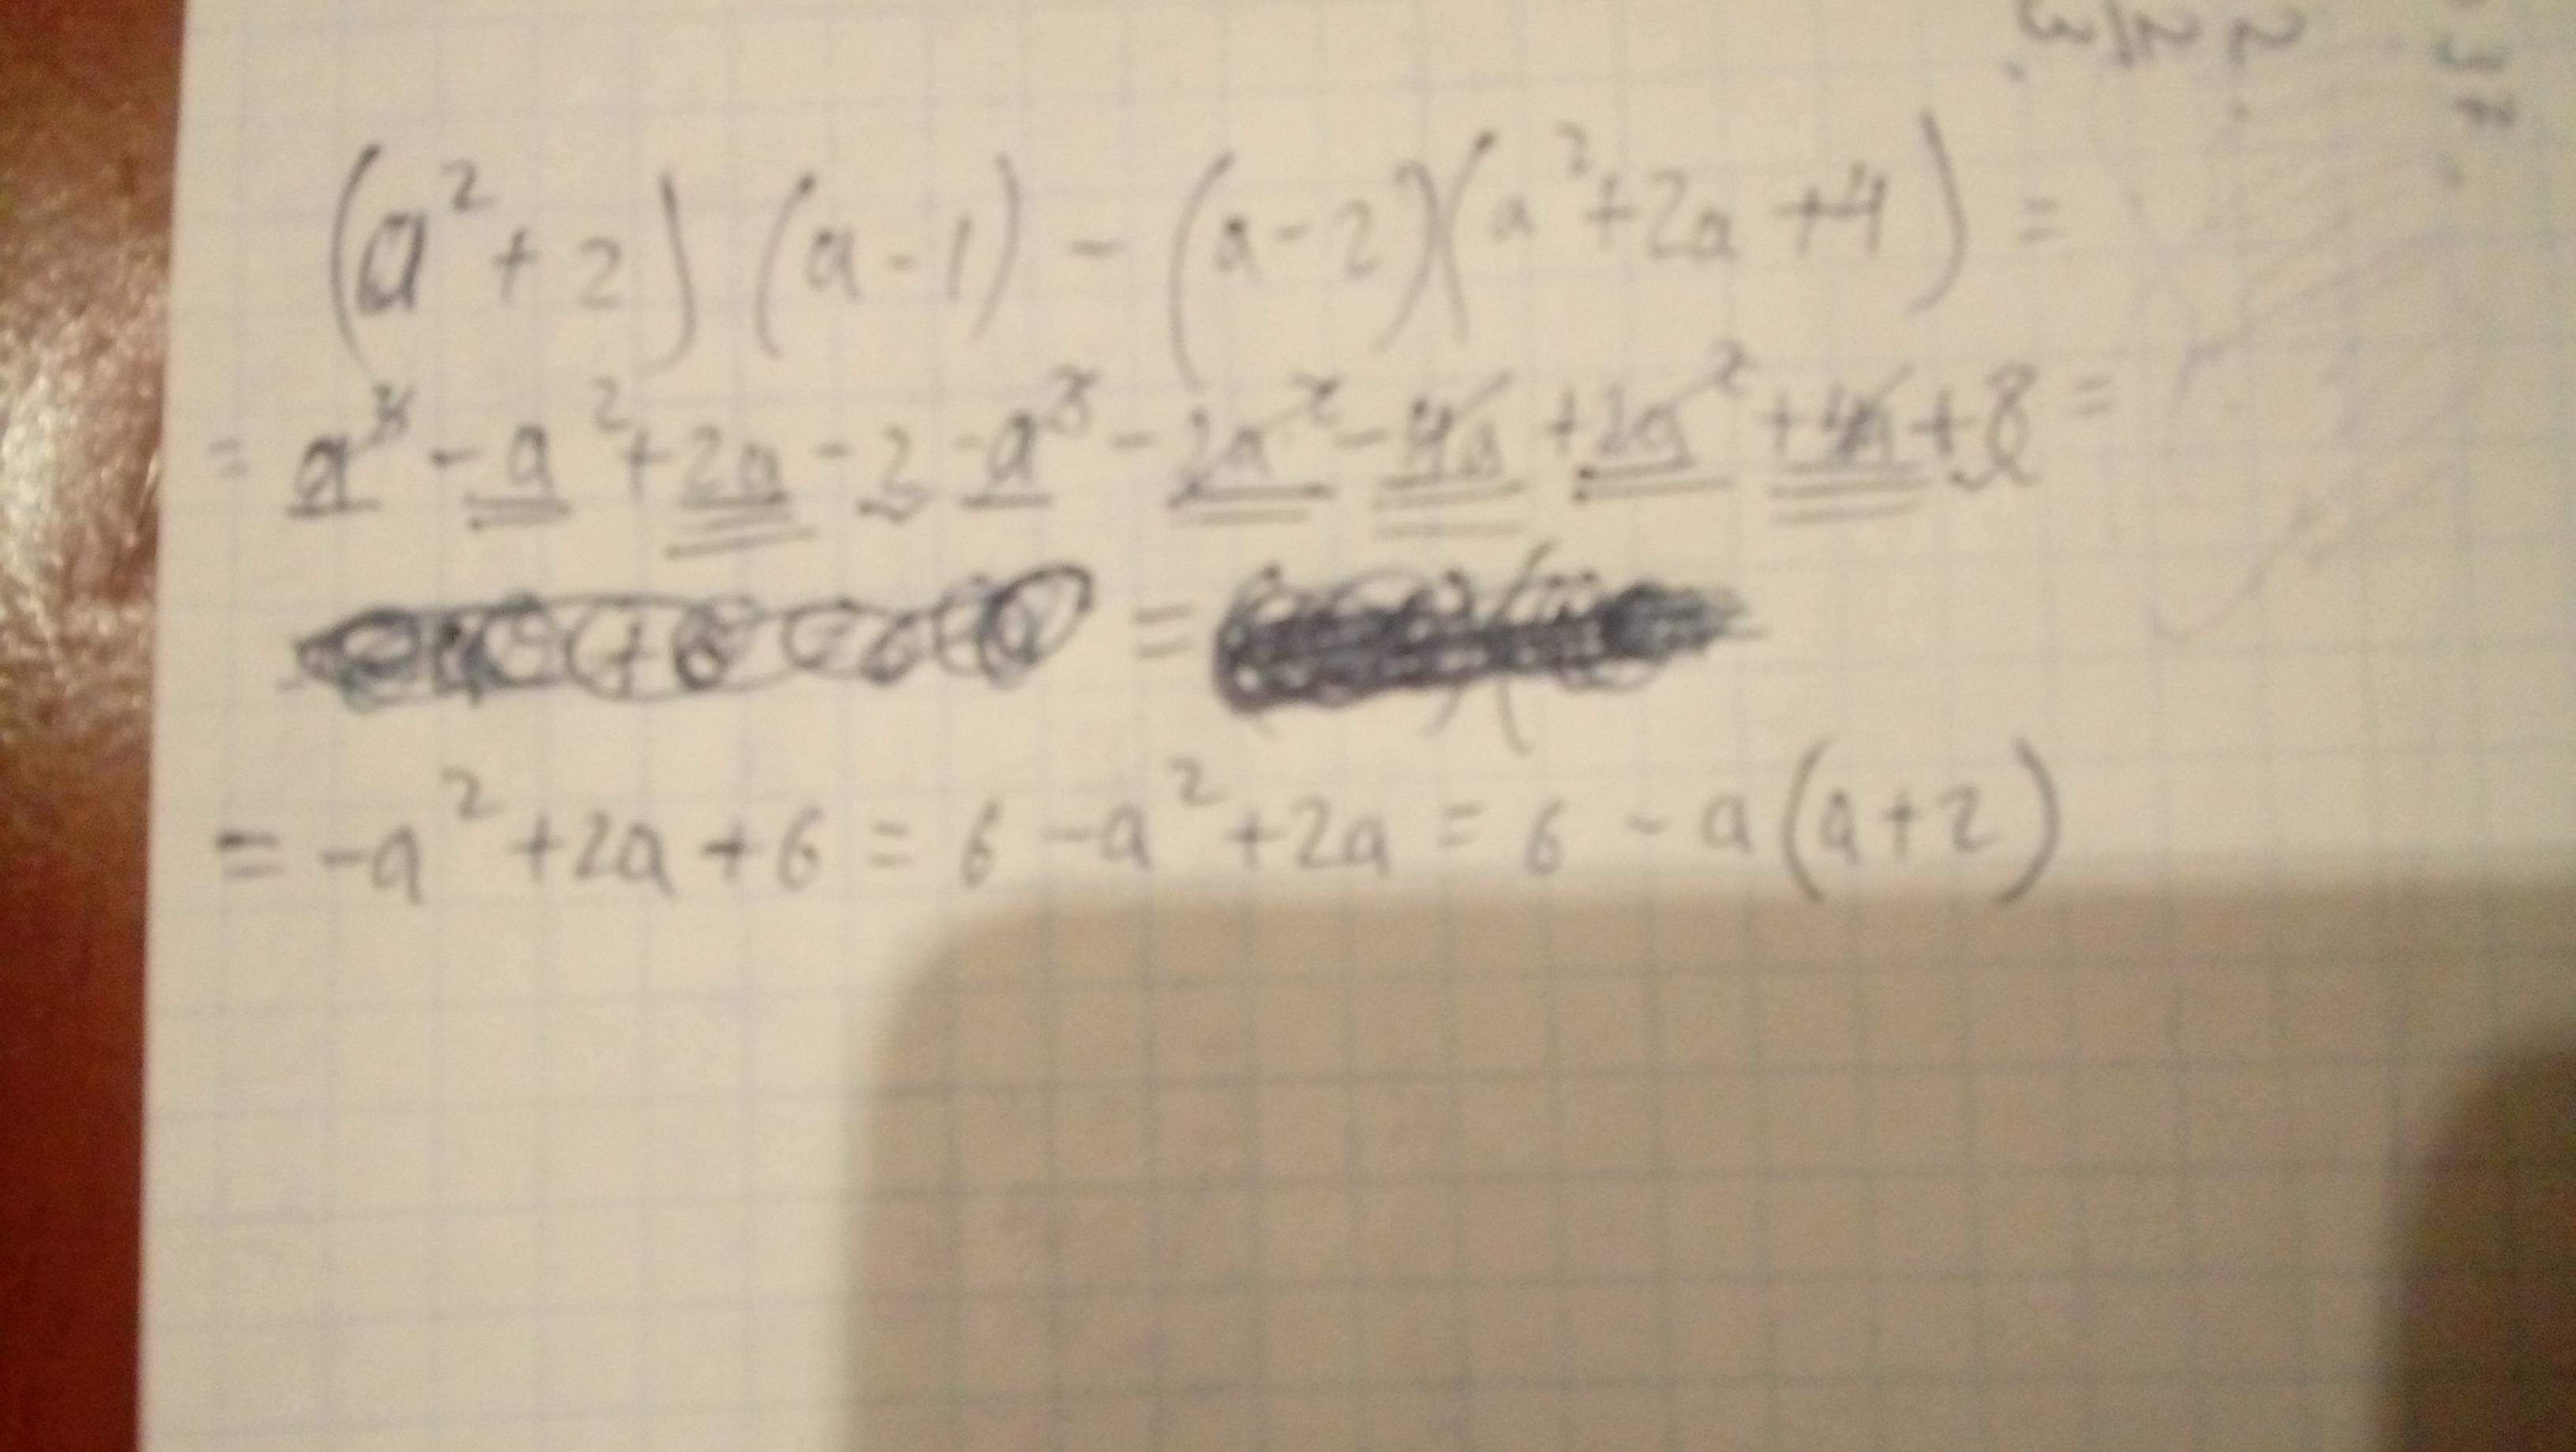 (a²+2)(a-1)-(a-2)(a²+2a+4)=
=a³-a²+2a-2-a³-2a²-4a+2a²+4a+8=
=
=-a²+2a+6=6-a²+2a=6-a(a+2)